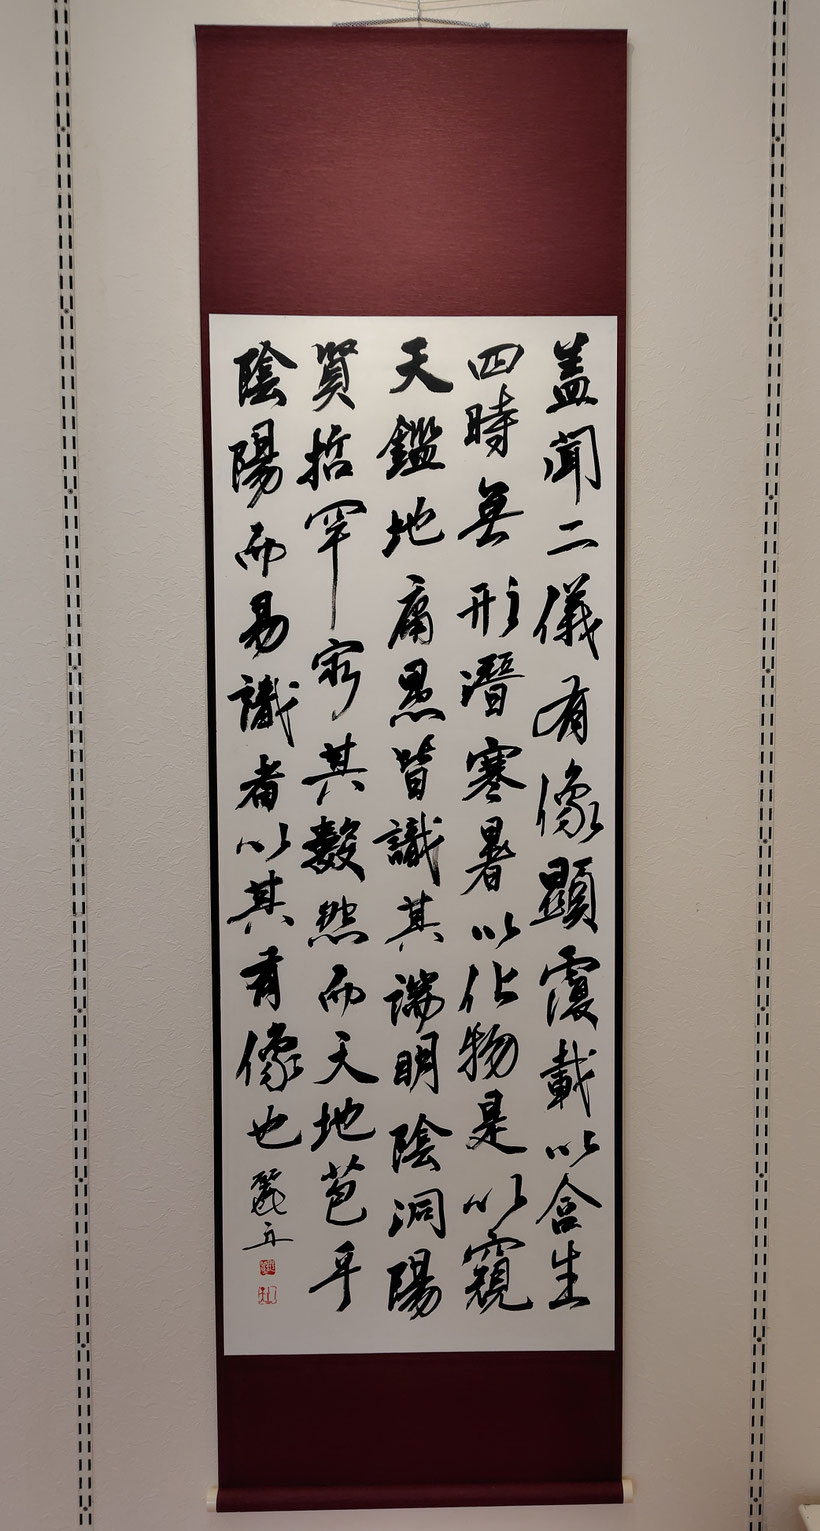 盖聞二儀有像顯覆載以含生
四時無形潛寒暑以化物是以窺
天鑑地庸愚皆識其端明陰洞陽
賢哲罕窮其數然而天地苞乎
陰陽而易識者以其有像也